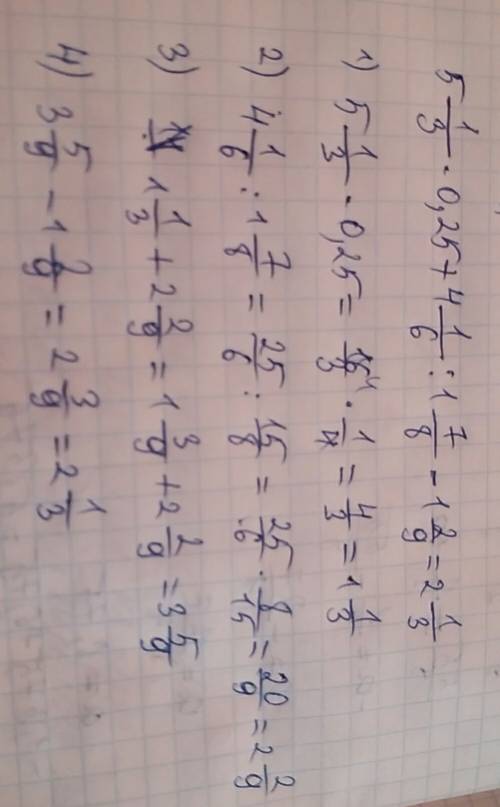 5 1/3 · 0,25 + 4 1/6 : 1 7/8 - 1 2/9 = 2 1/3
1) 5 1/3 · 0,25 = 16/3 · 1/4 = 4/3 = 1 1/3
2) 4 1/6 : 1 7/8 = 25/6 : 15/8 = 25/6 · 8/15 = 20/9 = 2 2/9
3) 1 1/3 + 2 2/9 = 1 3/9 + 2 2/9 = 3 5/9
4) 3 5/9 - 1 2/9 = 2 3/9 = 2 1/3